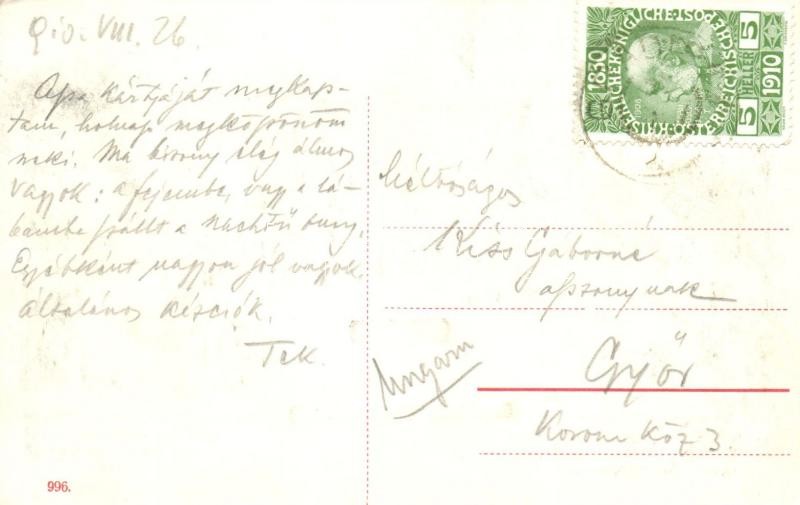 910. VIII. 26.
Apa kártyáját megkap-
tam, holnap megköszönöm
neki. Ma bizony elég álmos
vagyok: a fejembe, vagy a lá-
bamba szállt a
Egyébként nagyon jól vagyok.
Általános kézcsók.
996.
1830
1910
5
HELLER
5
KAISERLICHE KÖNIGLICHE ÖSTERREICHISCHE POST
1908
Méltóságos
Kiss Gáborné
asszonynak
Ungarn
Győr
Korona köz 3.